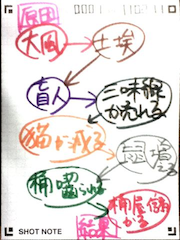 原因
大風
土埃
盲人
三味線
が売れる
猫が減る
鼠増
える
桶囓られる
桶屋儲
かる
結果
SHOT NOTE